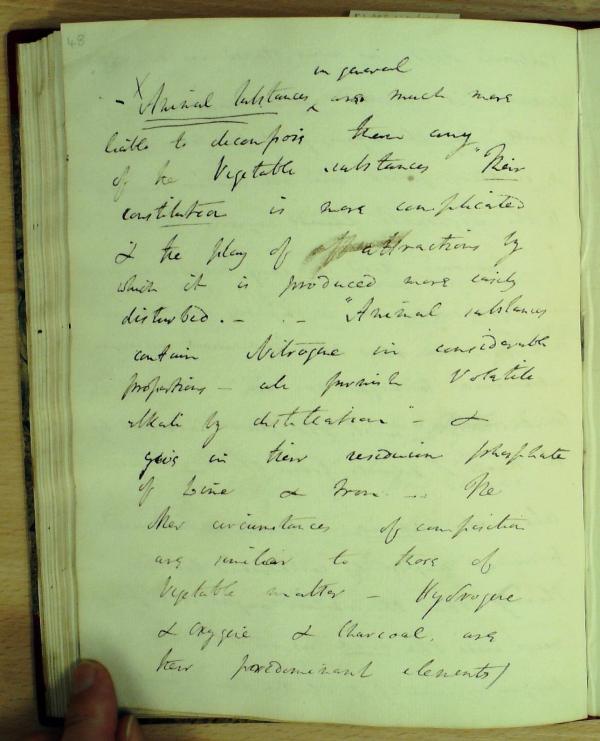 48
in general
- X Animal Substances ^ are much more
liable to decompose than any
of the Vegetable substances "Their
constitution is more complicated
& the play of attractions by
which it is produced more easily
disturbed. - . - "Animal substances
contain Nitrogene in considerable
proportions - all furnish Volatile
alkali by distillation" - &
give in their residuum phosphate
of Lime & Iron ... The
other circumstances of composition
are similar to those of
Vegetable matter - Hydrogene
& Oxygene & Charcoal. are
their predominant elements/